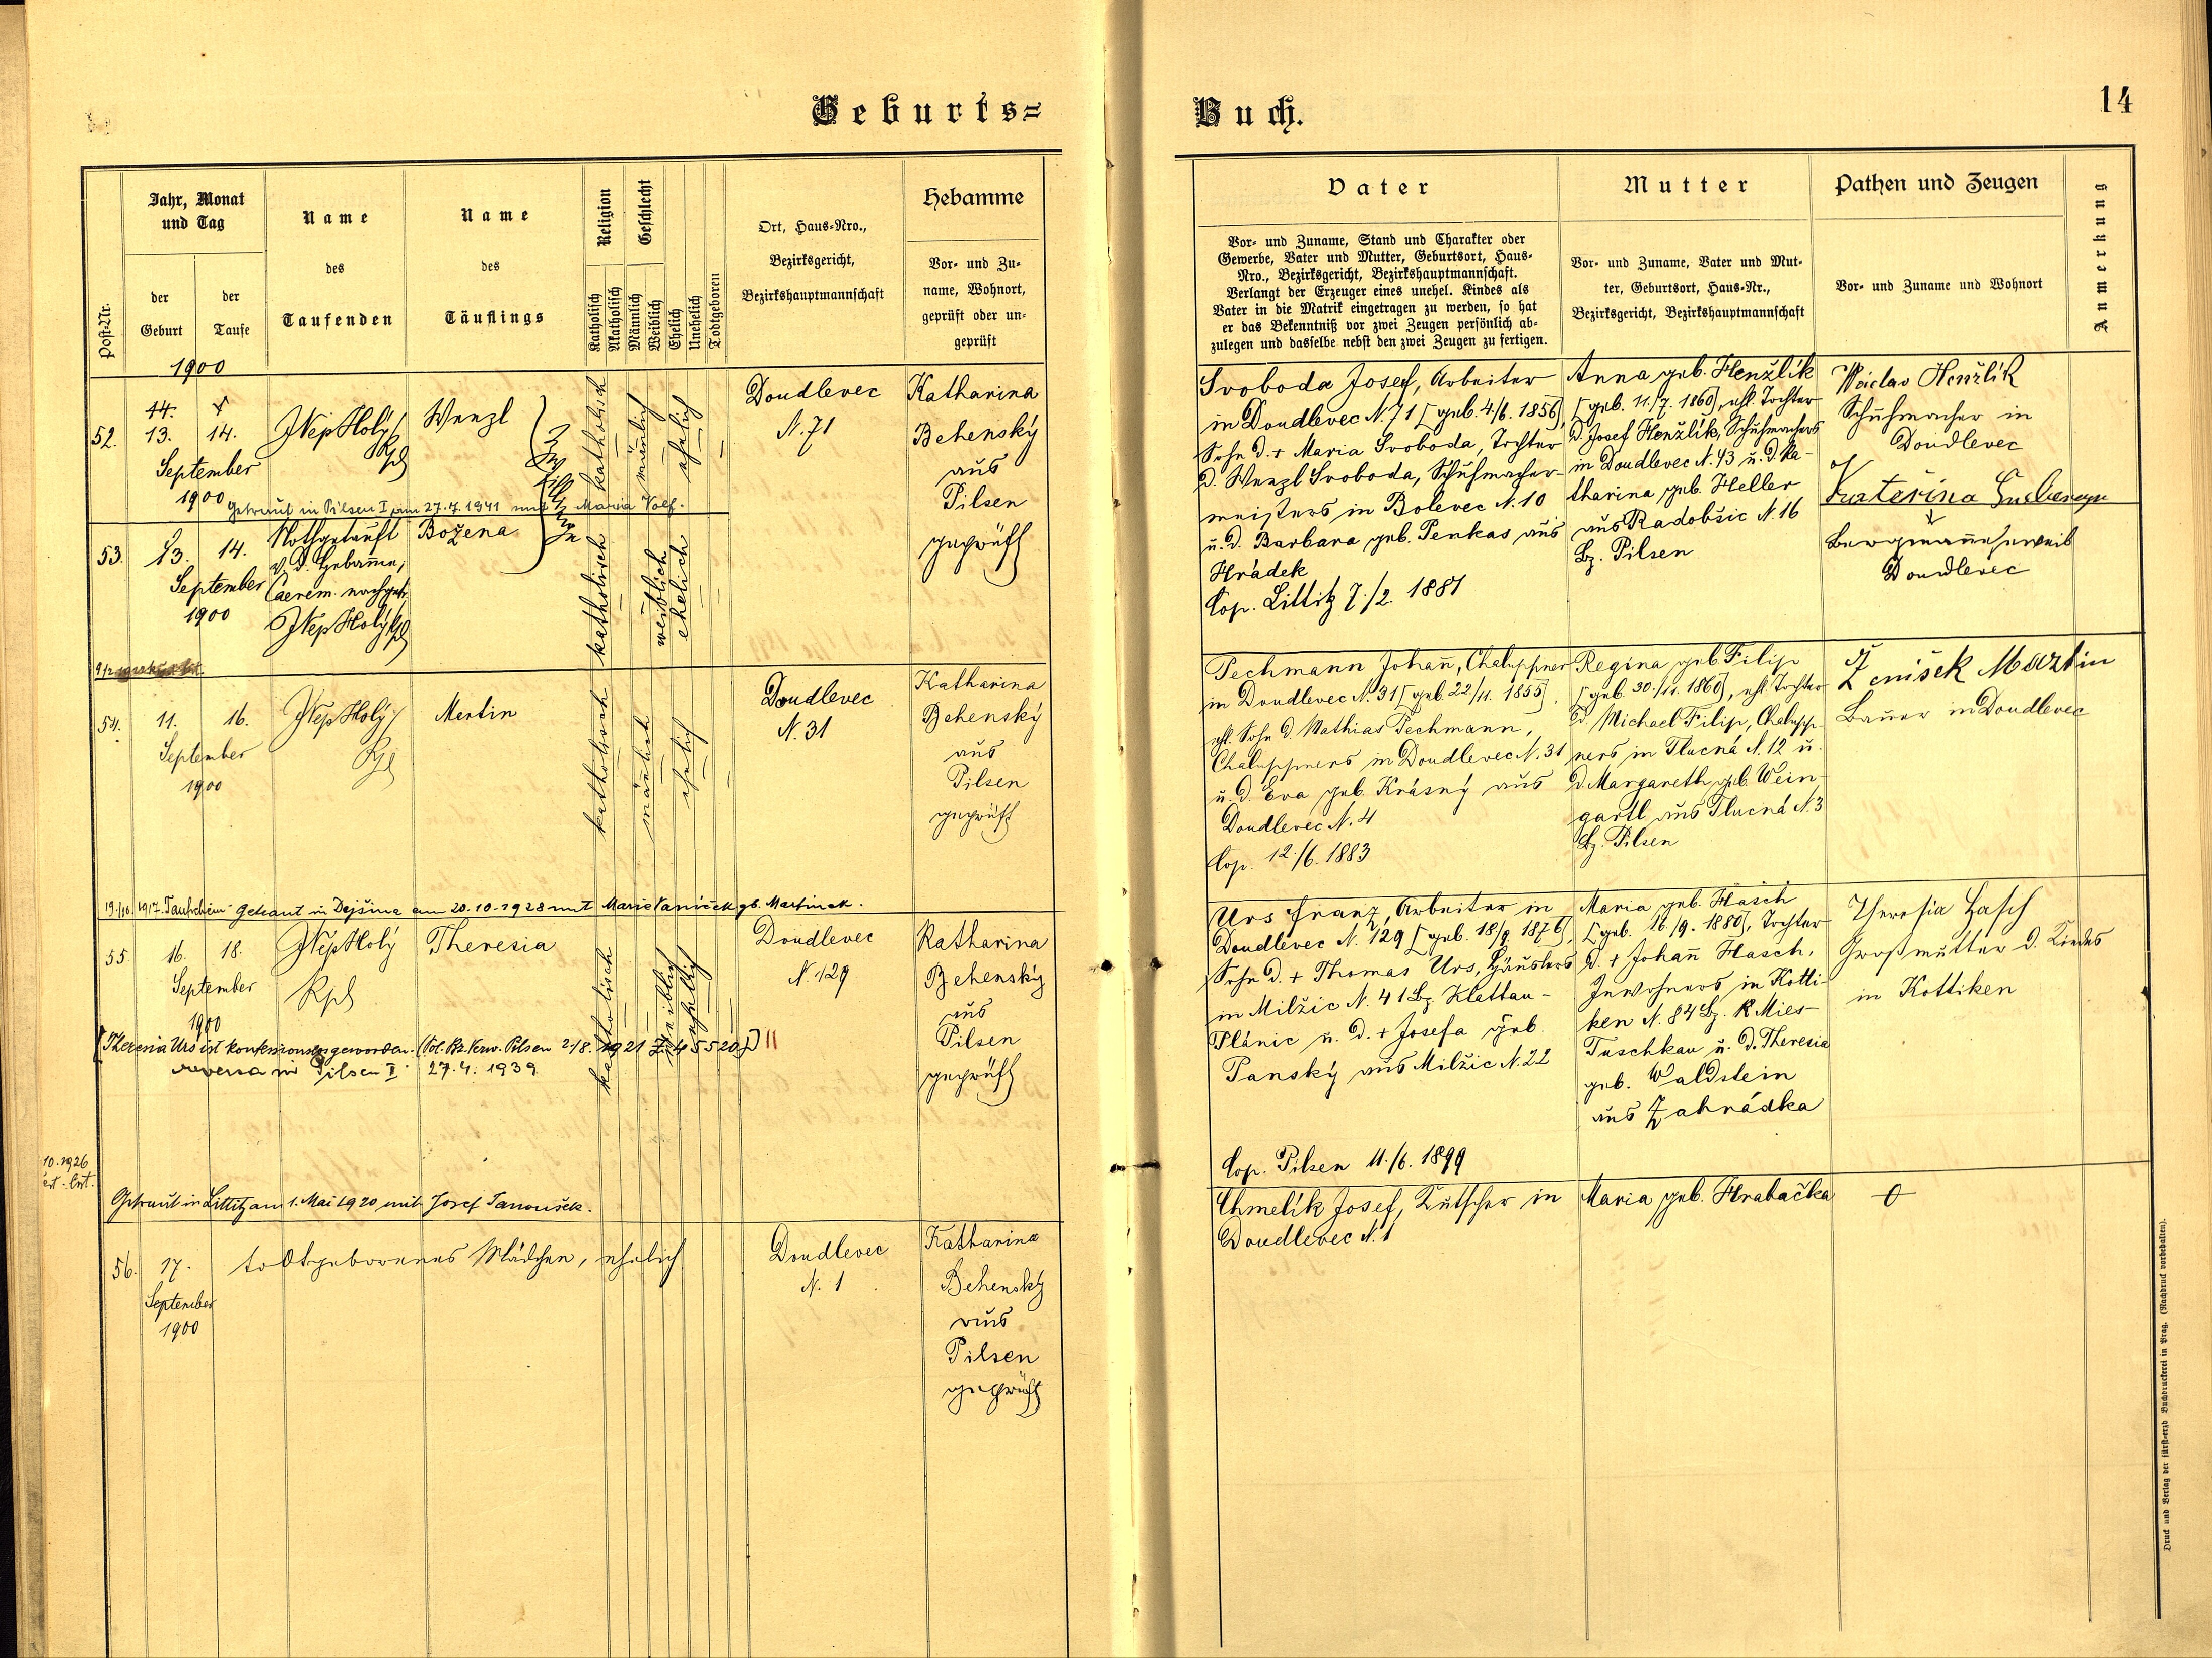 Geburts=
Buch.
14
Post-Nr.
Jahr, Monat
und Tag
der
Geburt
der
Taufe
Name
des
Taufenden
Name
des
Täuflings
Religion
Katholisch
Akatholisch
Geschlecht
Männlich
Weiblich
Ehelich
Unehelich
Todtgeboren
Ort, Haus-Nro.,
Bezirksgericht,
Bezirkshauptmannschaft
Hebamme
Vor- und Zu-
name, Wohnort,
geprüft oder un-
geprüft
Vater
Vor- und Zuname, Stand und Charakter oder
Gewerbe, Vater und Mutter, Geburtsort, Haus-
Nro., Bezirksgericht, Bezirkshauptmannschaft.
Verlangt der Erzeuger eines unehel. Kindes als
Vater in die Matrik eingetragen zu werden, so hat
er das Bekenntniß vor zwei Zeugen persönlich ab-
zulegen und dasselbe nebst den zwei Zeugen zu fertigen.
Mutter
Vor- und Zuname, Vater und Mut-
ter, Geburtsort, Haus-Nr.,
Bezirksgericht, Bezirkshauptmannschaft
Pathen und Zeugen
Vor- und Zuname und Wohnort
Anmerkung
1900
52.
13.
14.
September
1900
JNep Holý
Kpl
Wenzl
katholisch
männlich
ehelich
Doudlevec
N. 71
Katharina
Behenský
aus
Pilsen
geprüft
Getraut in Pilsen I am 27.7.1941 mit Maria Volf.
53.
13.
14.
September
1900
Nothgetauft
v. d. Hebamme,
Caerem. nachget.
JNep Holý Kpl
Božena
katholisch
weiblich
ehelich
Svoboda Josef, Arbeiter
in Doudlevec N. 71 [geb. 4./6. 1856],
Sohn d. + Maria Svoboda, Tochter
d. Wenzl Svoboda, Schuhmacher-
meisters in Bolevec N. 10
u. d. Barbara geb. Penkas aus
Hrádek
Cop. Littitz 7./2. 1881
Anna geb. Henžlik
[geb. 11./7. 1860], ehl. Tochter
d. Josef Henžlik, Schuhmachers
in Doudlevec N. 43 u. d. Ka-
tharina geb. Heller
aus Radobšic N. 16
Bz. Pilsen
Václav Henžlik
Schuhmacher in
Doudlevec
Katerina
Bergmannsweib
Doudlevec
54.
11.
16.
September
1900
JNep Holý
Kpl
Martin
katholisch
männlich
ehelich
Doudlevec
N. 31
Katharina
Behenský
aus
Pilsen
geprüft
Pechmann Johann, Chaluppner
in Doudlevec N. 31 [geb. 22/11. 1855].
ehl. Sohn d. Mathias Pechmann,
Chaluppners in Doudlevec N. 31
u. d. Eva geb. Krásný aus
Doudlevec N. 4
Cop. 12./6. 1883
Regina geb Filip
[geb. 30./11. 1860], ehl. Tochter
d. Michael Filip, Chalupp-
ners in Tlucná N. 12 u.
d. Margareth geb. Wein-
gartl aus Tlucná N. 3
Bz. Pilsen
Ženíšek Martin
Bauer in Doudlevec
19./10. 1917. Taufschein. Getraut in Dejšina am 20.10.1928 mit Marie Vaníček gb. Martinek.
55.
16.
18.
September
1900
JNep Holý
Kpl
Theresia
katholisch
weiblich
ehelich
Doudlevec
N. 129
Katharina
Behenský
aus
Pilsen
geprüft
[Theresia Urs ist konfessionslos geworden. (Pol. Bz. Verw. Pilsen 2/8. 1921 Z. 145520)] II
reversa in Pilsen I 27.4. 1939
Getraut in Littitz am 1. Mai 1920 mit Josef Janoušek.
10. 1926
Urs Franz, Arbeiter in
Doudlevec N. 129 [geb. 18/9. 1876],
Sohn d. + Thomas Urs, Häuslers
in Milžic N. 41 Bz. Klattau-
Plánic u. d. + Josefa geb.
Panský aus Milžic N. 22
Cop. Pilsen 11./6. 1899
Maria geb. Hasch
[geb. 16./9. 1880], Tochter
d. + Johann Hasch,
Inwohners in Kotti-
ken N. 84 Bz. Mies-
Tuschkau u. d. Theresia
geb. Waldstein
aus Zahrádka
Theresia Hasch
Großmutter d. Kindes
in Kottiken
56.
17.
September
1900
todtgeborenes Mädchen, ehelich
Doudlevec
N. 1
Katharina
Behenský
aus
Pilsen
geprüft
Chmelík Josef, Kutscher in
Doudlevec N. 1
Maria geb. Hrabačka
Druck und Verlag der fürst-erzb Buchdruckerei in Prag. (Nachdruck vorbehalten).